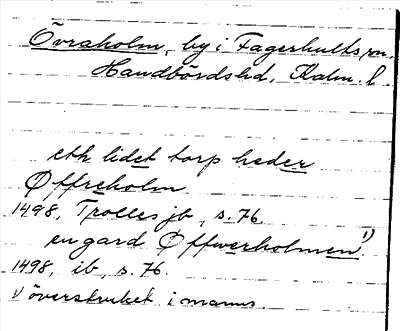 Övraholm, by i Fagerhults sn.
Handbörds hd, Kalm. l.
ett lidet torp heder
Øffreholm
1498, Trolles jb, s. 76.
en gard Øffwerholmen 1)
1498, ib, s. 76.
1) överstruket i manus.